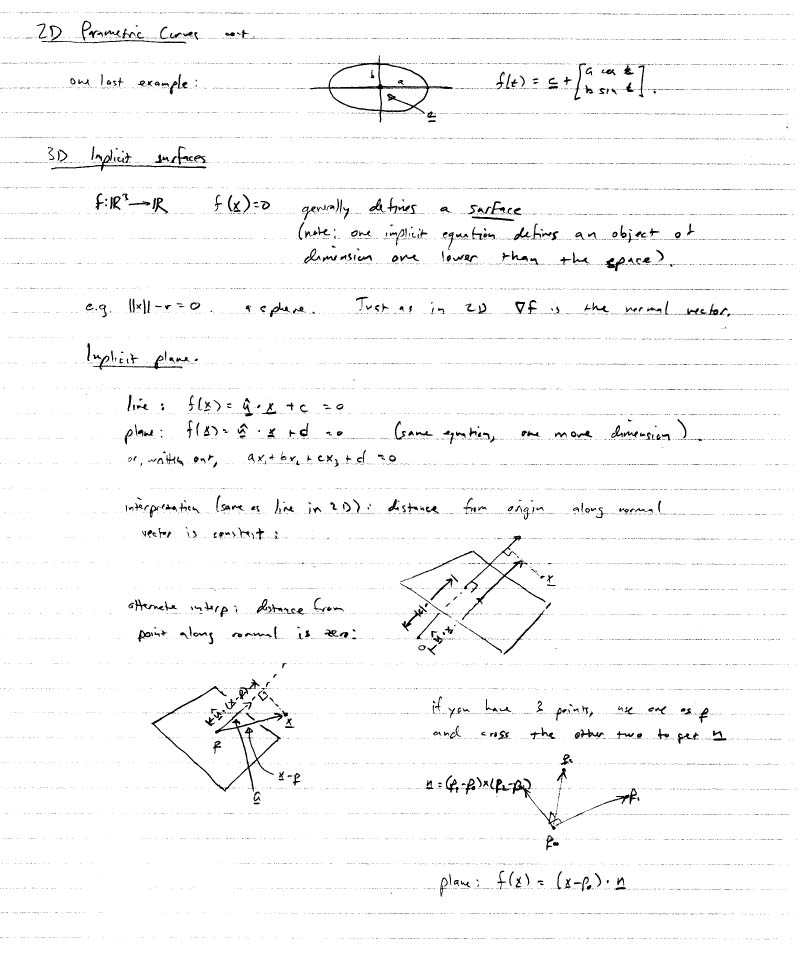 2D Parametric Curves cont.
one last example:
b a
c
f(t) = c + [a cos t
b sin t].
3D Implicit surfaces
f: ℝ³ → ℝ f(x) = 0 generally defines a surface
(note: one implicit equation defines an object of
dimension one lower than the space).
e.g. ||x|| - r = 0. a sphere. Just as in 2D ∇f is the normal vector.
Implicit plane.
line: f(x) = û · x + c = 0
plane: f(x) = û · x + d = 0 (same equation, one more dimension).
or, written out, ax₁ + bx₂ + cx₃ + d = 0
interpretation (same as line in 2D): distance from origin along normal
vector is constant:
x
0
alternate interp: distance from
point along normal is zero:
û · (x-p)
x
p
x-p
û
if you have 3 points, use one as p
and cross the other two to get n
n = (p₁-p₀)×(p₂-p₀)
p₂
p₁
p₀
plane: f(x) = (x-p₀) · n